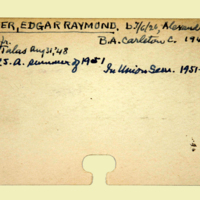 ER, EDGAR RAYMOND, b. 7/6/26, Alexand
Jr. B.A. Carleton C. 194
Tirlas Aug 31, '48
S.A. summer of 1951 In Union Sem. 1951-